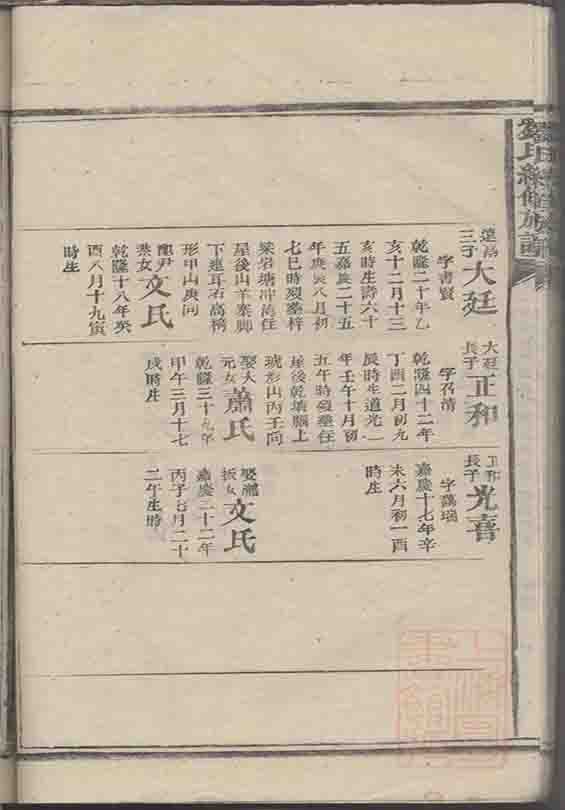 氏續修族譜
三子大廷
字書賢
乾隆二十年乙
亥十二月十三
亥時生壽六十
五嘉慶二十五
年庚辰八月初
七巳時歿葬梓
梁岩塘冲尚任
屋後山羊寨脚
下連耳石高橋
形甲山庚向
配尹文氏
燕女
乾隆十八年癸
酉八月十九寅
時生
大廷長子正和
字召清
乾隆四十二年
丁酉二月初九
辰時生道光二
年壬午十月初
五午時歿葬任
屋後乾塘腦上
虎形山丙壬向
娶大元女蕭氏
乾隆三十九年
甲午三月十七
戌時生
正和長子光喜
字
嘉慶十七年辛
未六月初一酉
時生
娶女文氏
嘉慶二十二年
丙子七月二十
二午生時